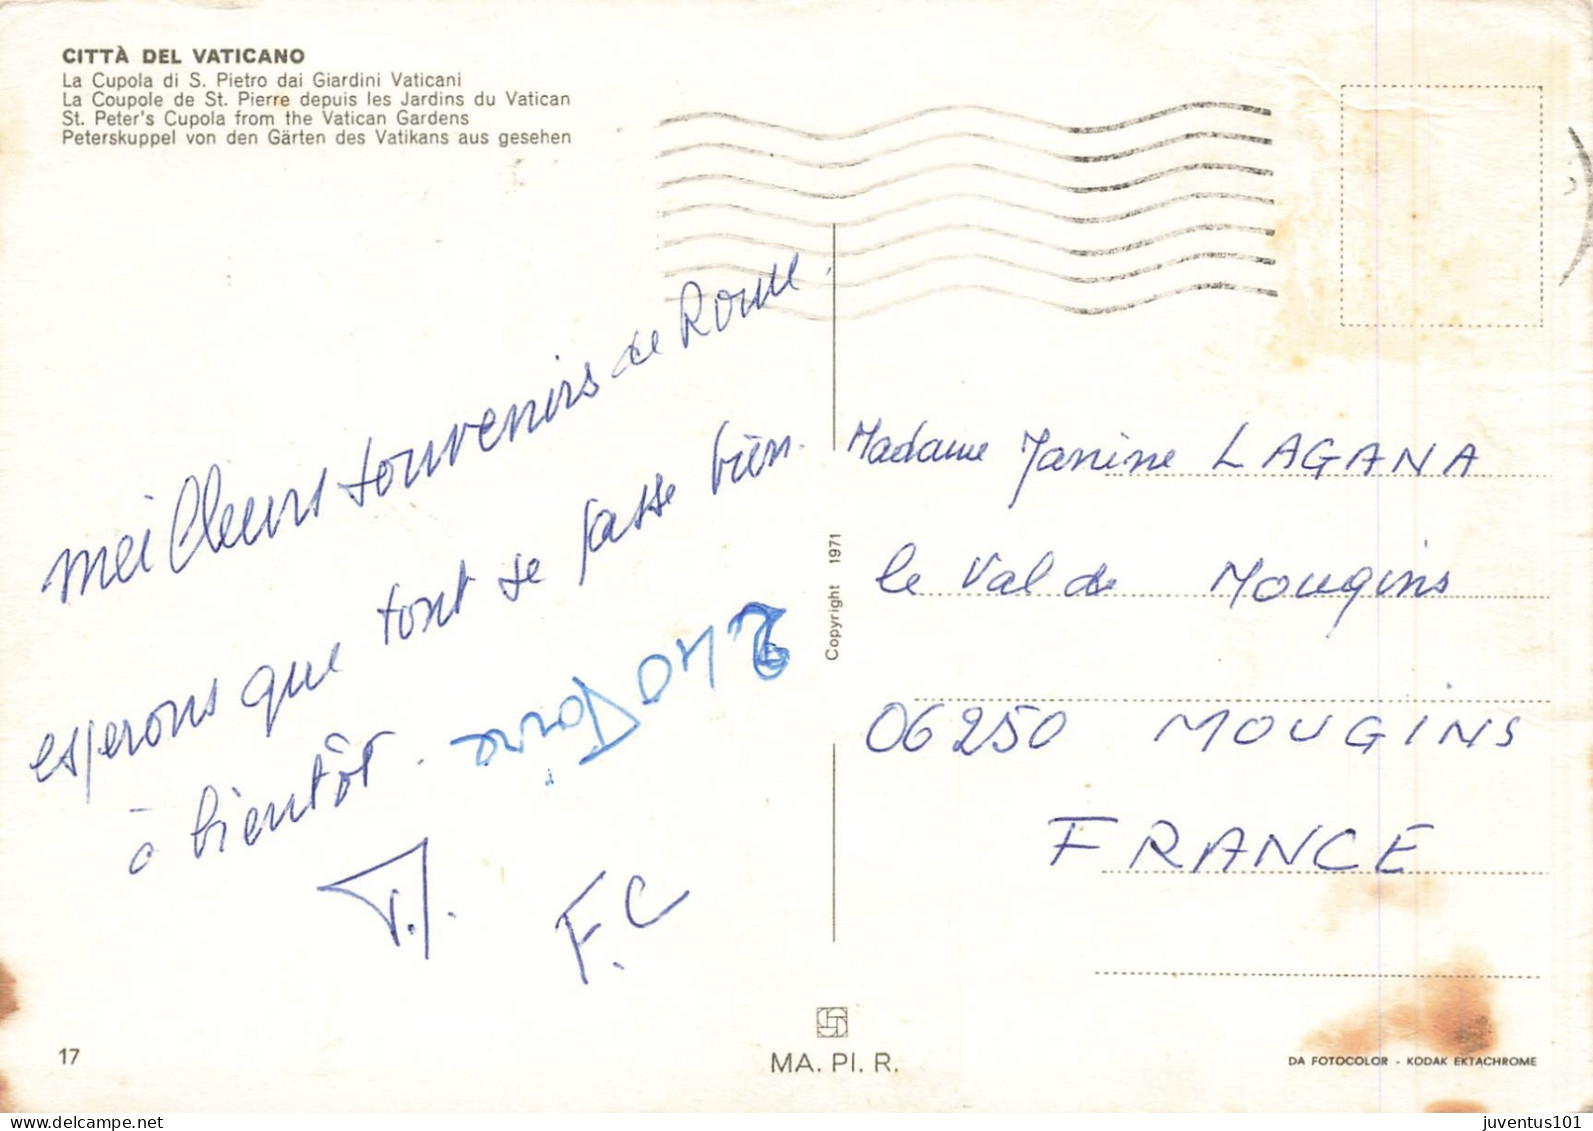 CITTÀ DEL VATICANO
La Cupola di S. Pietro dai Giardini Vaticani
La Coupole de St. Pierre depuis les Jardins du Vatican
St. Peter's Cupola from the Vatican Gardens
Peterskuppel von den Gärten des Vatikans aus gesehen
meilleurs souvenirs de Rome.
esperons que tout se passe bien.
à bientôt.
F.C
Madame Janine LAGANA
le Val de Mougins
06250 MOUGINS
FRANCE
Copyright 1971
17
MA. PI. R.
DA FOTOCOLOR - KODAK EKTACHROME
juventus101